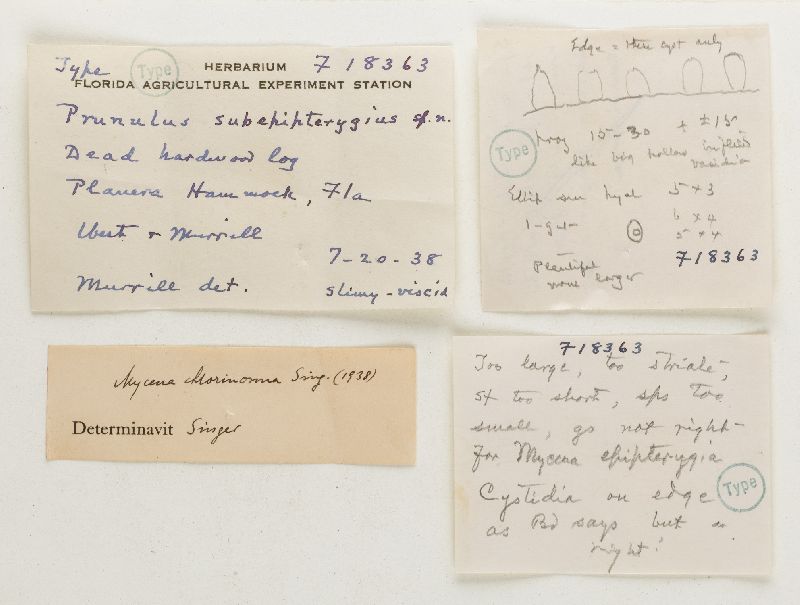 Type Type HERBARIUM F 18363
FLORIDA AGRICULTURAL EXPERIMENT STATION
Prunulus subepipterygius sp. n.
Dead hardwood log
Planera Hammock, Fla
West & Murrill
7-20-38
Murrill det. slimy-viscid
Edge = these cyst only
Type
15-30 ± 15
like big hollow
Ellip hyal 5 x 3
1-gut- 6 x 4
5 x 4
F18363
Plentiful
none larger
Mycena chlorinosma Sing. (1938)
Determinavit Singer
F18363
Too large, too striate,
st too short, sps too
small, go not right
for Mycena epipterygia
Cystidia on edge
as Bd says but
right!
Type